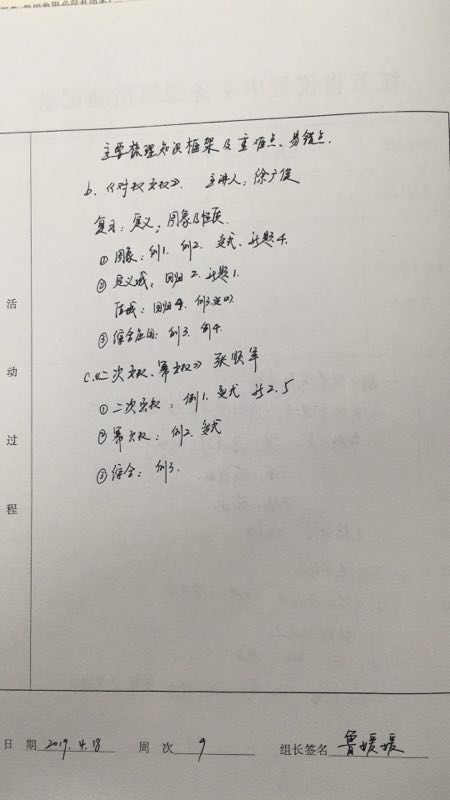 主要梳理知识框架及重难点、易错点.
b.《对数函数》 主讲人：徐广俊
复习：定义；图象及性质
① 图象：例1. 例2. 变式. 配题4.
② 定义域：回归2. 配题1.
值域：回归4. 例3.
③ 综合应用：例3. 例4.
c.《二次函数、幂函数》 张顺军
① 二次函数：例1. 变式 配2.5
② 幂函数：例2. 变式
③ 综合：例3.
活
动
过
程
日 期 2019.4.18 周 次 9 组长签名 鲁媛媛